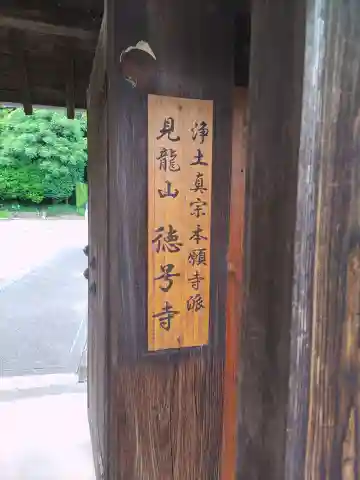 浄土真宗本願寺派
見龍山
徳号寺